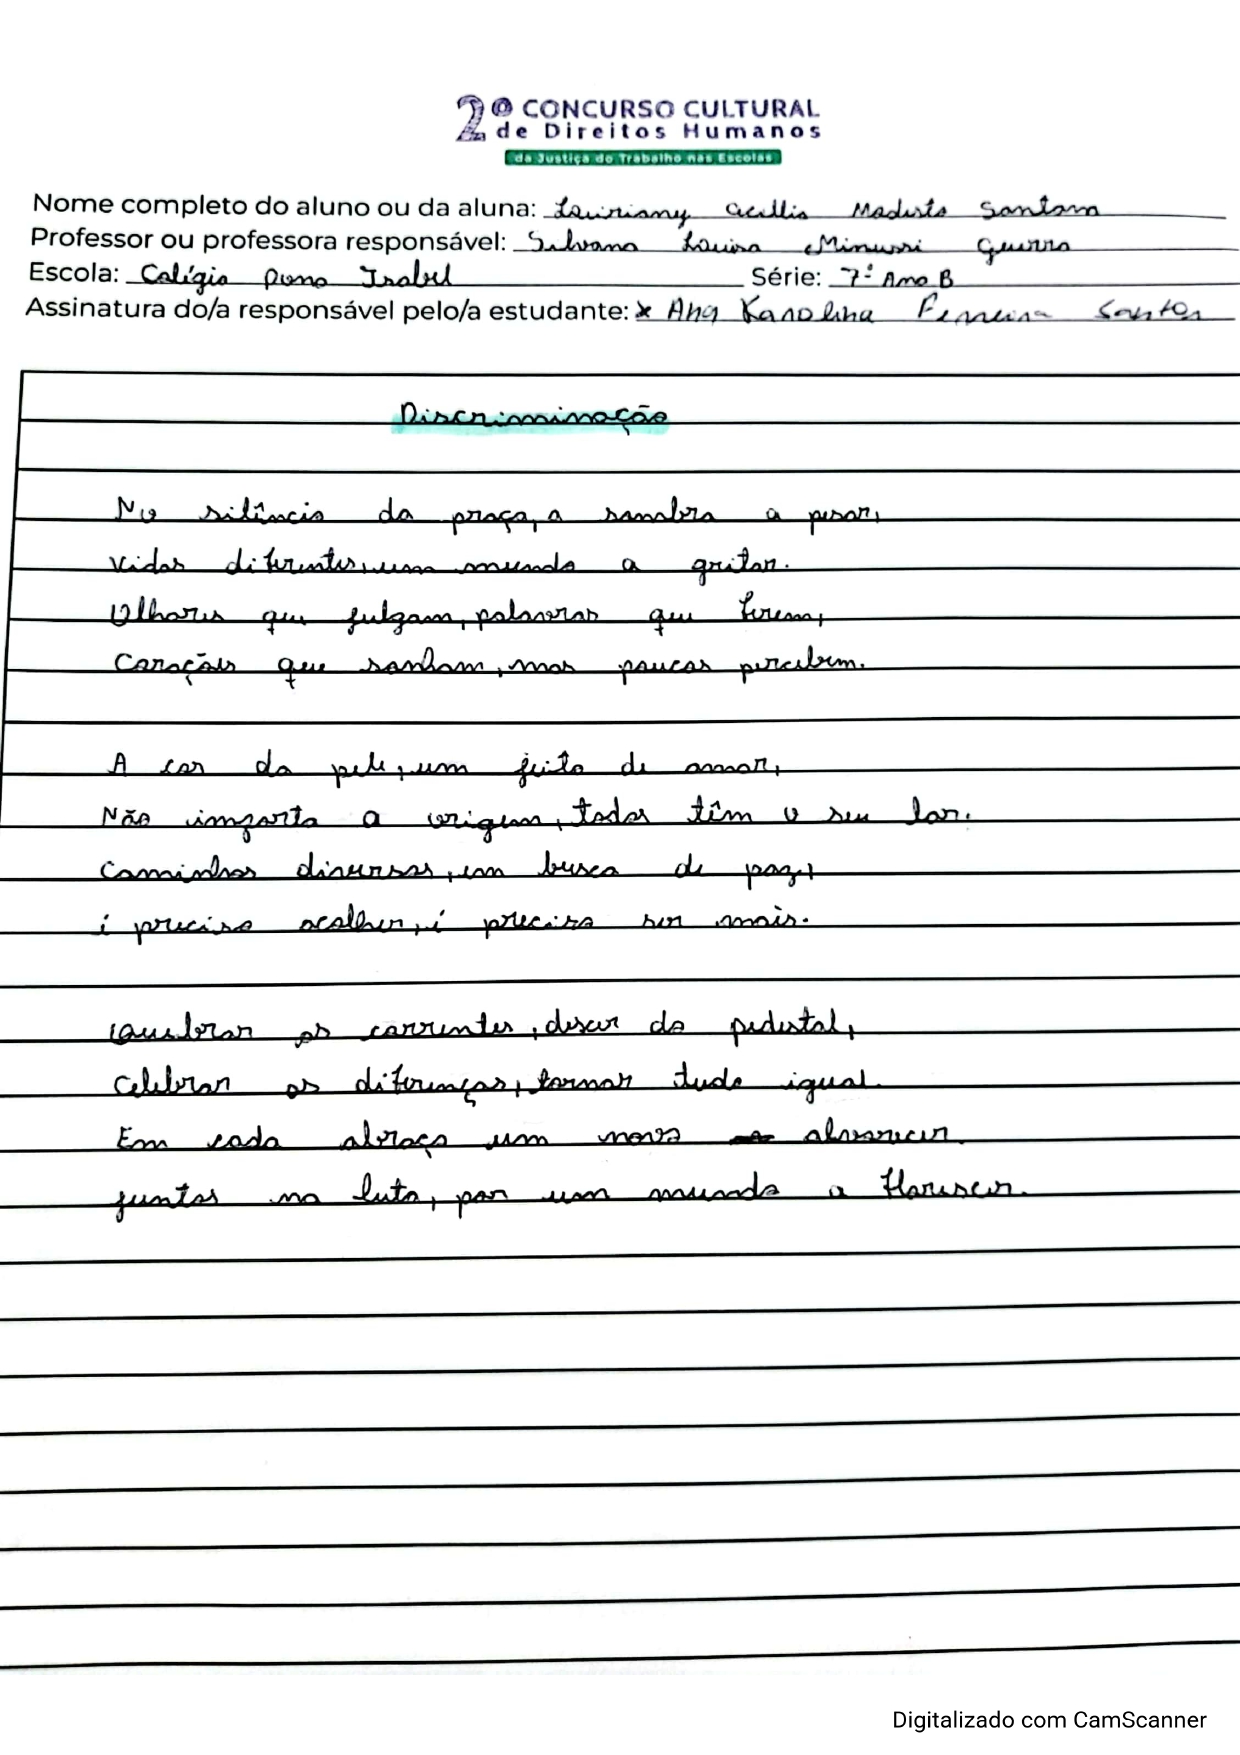 2º CONCURSO CULTURAL
de Direitos Humanos
da Justiça do Trabalho nas Escolas
Nome completo do aluno ou da aluna: Santana
Professor ou professora responsável: Silvana Louisa Minussi Guerra
Escola: Colégio Dona Isabel Série: 7º Ano B
Assinatura do/a responsável pelo/a estudante: x Ana Karolina Ferreira Santos
Discriminação
No silêncio da praça, a sombra a pesar,
vidas diferentes, um mundo a gritar.
Olhares que julgam, palavras que ferem,
Corações que sonham, mas poucos percebem.
A cor da pele, um jeito de amar,
Não importa a origem, todos têm o seu lar.
Caminhos diversos, em busca de paz,
é preciso acolher, é preciso ser mais.
Quebrar as correntes, descer do pedestal,
Celebrar as diferenças, tornar tudo igual.
Em cada abraço um novo alvorecer
juntos na luta, por um mundo a florescer.
Digitalizado com CamScanner